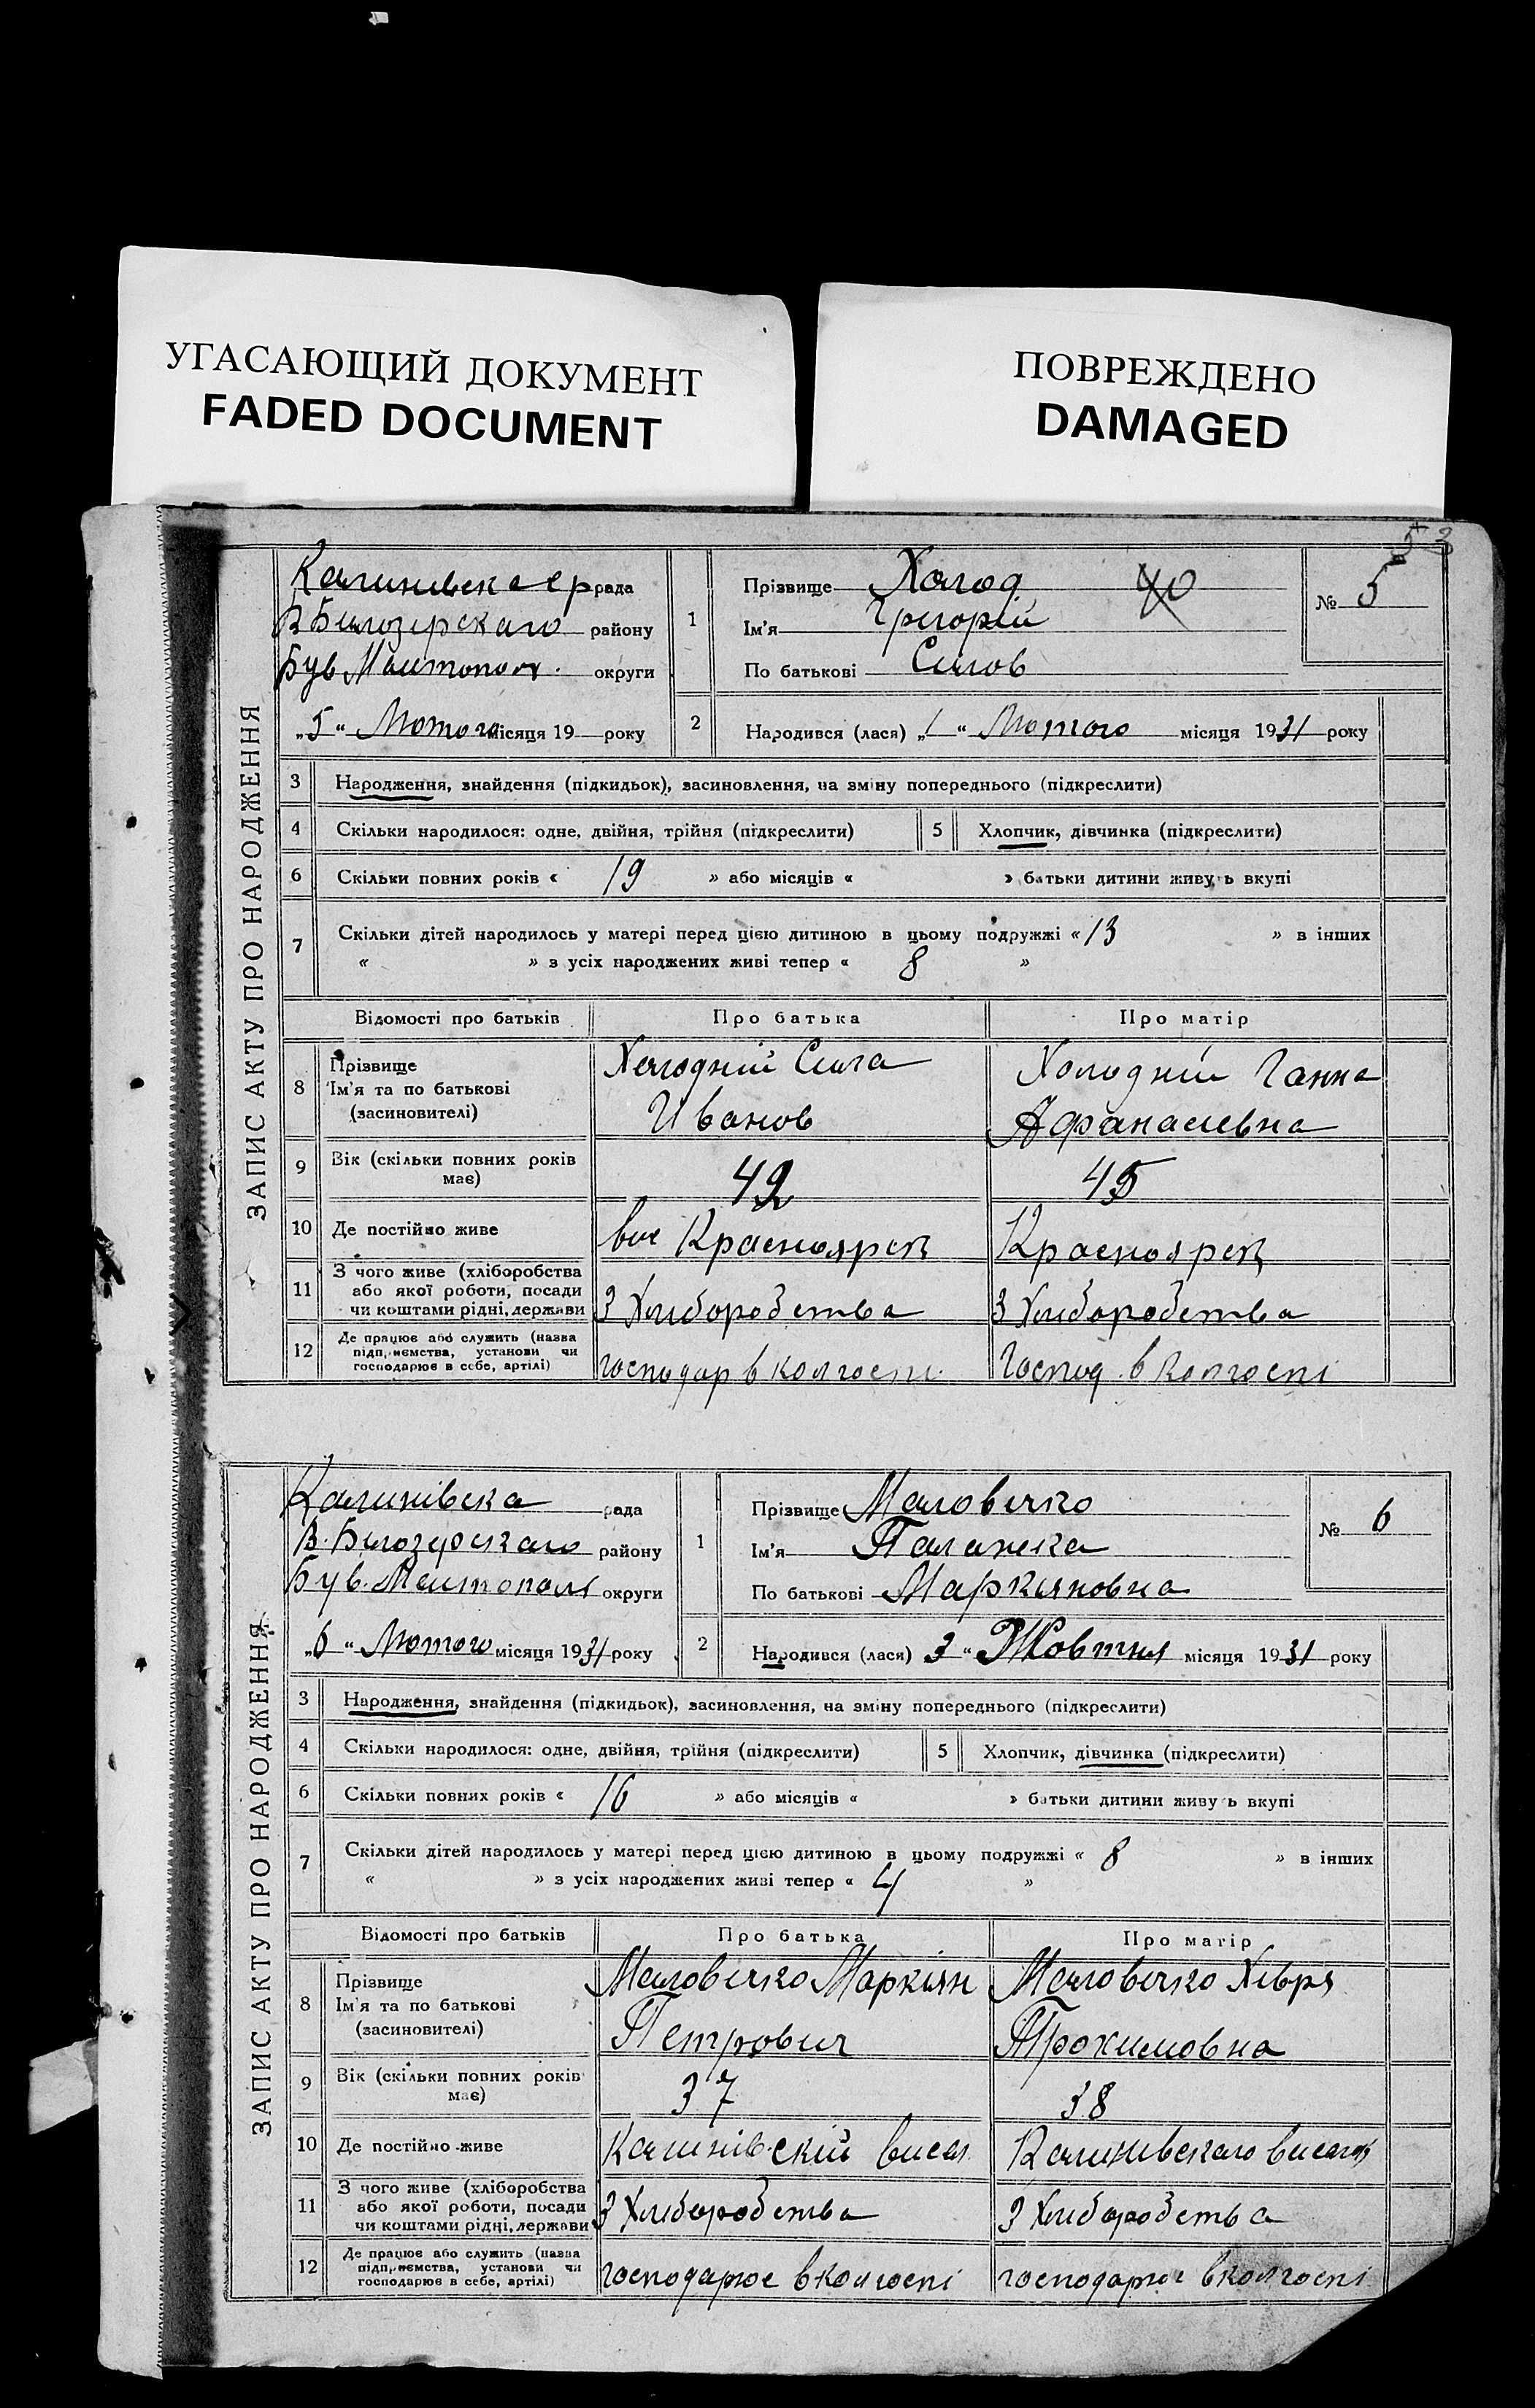 УГАСАЮЩИЙ ДОКУМЕНТ
FADED DOCUMENT
ПОВРЕЖДЕНО
DAMAGED
53
ЗАПИС АКТУ ПРО НАРОДЖЕННЯ
Калинивска с р рада
В Билозерскаго району
Був Мелитопол. округи
„5“ Лютого місяця 19 року
1 Прізвище Холод 40
Ім'я Григорій
По батькові Силов
№ 5
2 Народився (лася) „1“ Лютого місяця 1931 року
3 Народження, знайдення (підкидьок), засиновлення, на зміну попереднього (підкреслити)
4 Скільки народилося: одне, двійня, трійня (підкреслити) 5 Хлопчик, дівчинка (підкреслити)
6 Скільки повних років « 19 » або місяців « » батьки дитини живуть вкупі
7 Скільки дітей народилось у матері перед цією дитиною в цьому подружжі « 13 » в інших
« » з усіх народжених живі тепер « 8 »
Відомості про батьків Про батька Про матір
8 Прізвище Ім'я та по батькові (засиновителі)
Холодний Сила
Иванов
Холодній Ганна
Афанасиевна
9 Вік (скільки повних років має) 42 45
10 Де постійно живе вис Красноярск Красноярск
11 З чого живе (хліборобства або якої роботи, посади чи коштами рідні, держави З Хлиборобства З Хлиборобства
12 Де працює або служить (назва підприємства, установи чи господарює в себе, артілі) господар в колгоспи. Господ. в колгоспі
ЗАПИС АКТУ ПРО НАРОДЖЕННЯ
Калинівска рада
В. Билозерскаго району
Був. Мелитополя округи
„6“ Лютого місяця 1931 року
1 Прізвище Маловичко
Ім'я Палажка
По батькові Маркияновна
№ 6
2 Народився (лася) 3“ Жовтня місяця 1931 року
3 Народження, знайдення (підкидьок), засиновлення, на зміну попереднього (підкреслити)
4 Скільки народилося: одне, двійня, трійня (підкреслити) 5 Хлопчик, дівчинка (підкреслити)
6 Скільки повних років « 16 » або місяців « » батьки дитини живуть вкупі
7 Скільки дітей народилось у матері перед цією дитиною в цьому подружжі « 8 » в інших
« » з усіх народжених живі тепер « 4 »
Відомості про батьків Про батька Про матір
8 Прізвище Ім'я та по батькові (засиновителі)
Маловичко Маркіян
Петрович
Маловичко Хивря
Трохимовна
9 Вік (скільки повних років має) 37 38
10 Де постійно живе Калинівский висел. Калинивскаго виселк
11 З чого живе (хліборобства або якої роботи, посади чи коштами рідні, держави З Хлиборобства З Хлиборобства
12 Де працює або служить (назва підприємства, установи чи господарює в себе, артілі) господарює в колгоспі господарює в колгоспі